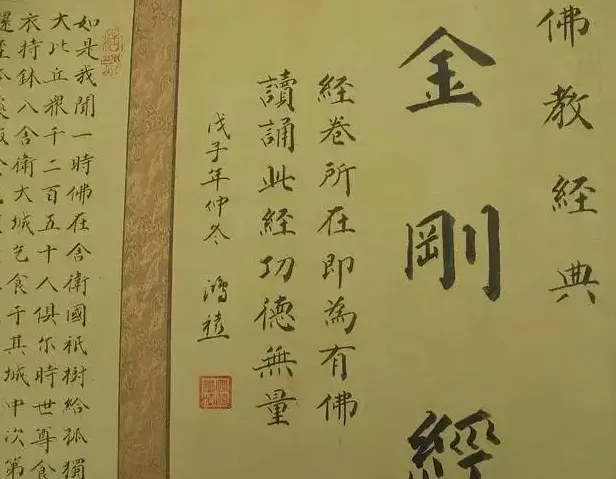 佛教經典
金剛經
經卷所在即為有佛
讀誦此經功德無量
戊子年仲冬
如是我聞一時佛在舍衛國祇樹給孤獨
大比丘眾千二百五十人俱尒時世尊食
衣持鉢入舍衛大城乞食于其城中次第